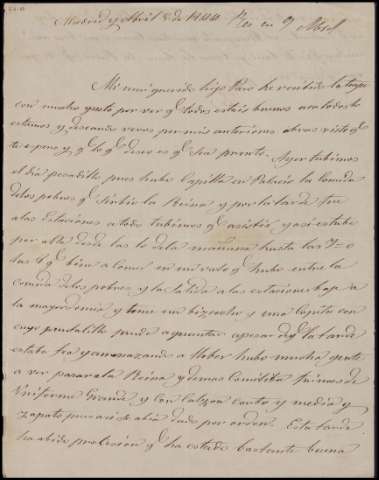 Madrid y Abril 5 de 1844 Rec en 9 Abril
Mi muy querido hijo Paco he recibido la tuya
con mucho gusto por ver q.e todos estais buenos aca todos lo
estamos y deseando veros por mis anteriores abras visto q.e
te espero y q.e lo q.e deseo es q.e sea pronto. Ayer tubimos
el dia pesadillo pues hubo Capilla en Palacio la Comida
de los pobres q.e sirbio la Reina y por la tarde fue
a las Estaciones a todo tubimos q.e asistir y asi estube
por alla desde las 10 de la mañana hasta las 7 o
las 8 q.e bine a comer en un rato q.e hubo entre la
comida de los pobres y la salida a las estaciones baje a
la mayordomia y tome un bizcocho y una Copita con
cuyo pude aguantar apesar de q.e la tarde
estaba fea y amenazando a llober hubo mucha gente
a ver pasar a la Reina y demas Comitiba fuimos de
Uniforme Grande y con Calzon corto y media y
zapato pues asi se abia dado por orden. Esta tarde
ha abido prosesion y q.e ha estado bastante buena